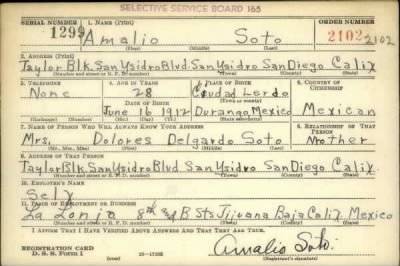 SELECTIVE SERVICE BOARD 165
SERIAL NUMBER 1. NAME (Print) ORDER NUMBER
1299 Amalio Soto 2102 2102
(First) (Middle) (Last)
2. ADDRESS (Print)
Taylor Blk. San Ysidro Blvd. San Ysidro San Diego Calif
(Number and street or R. F. D. number) (Town) (County) (State)
3. TELEPHONE 4. AGE IN YEARS 5. PLACE OF BIRTH 6. COUNTRY OF CITIZENSHIP
None 28 Ciudad Lerdo
DATE OF BIRTH (Town or county)
June 16 1912 Durango, Mexico Mexican
(Exchange) (Number) (Mo.) (Day) (Yr.) (State or country)
7. NAME OF PERSON WHO WILL ALWAYS KNOW YOUR ADDRESS 8. RELATIONSHIP OF THAT PERSON
Mrs. Dolores Delgardo Soto Mother
(Mr., Mrs., Miss) (First) (Middle) (Last)
9. ADDRESS OF THAT PERSON
Taylor Blk. San Ysidro Blvd. San Ysidro San Diego Calif
(Number and street or R. F. D. number) (Town) (County) (State)
10. EMPLOYER'S NAME
Self
11. PLACE OF EMPLOYMENT OR BUSINESS
La Lonja 8th and B Sts Tijuana Baja Calif. Mexico
(Number and street or R. F. D. number) (Town) (County) (State)
I AFFIRM THAT I HAVE VERIFIED ABOVE ANSWERS AND THAT THEY ARE TRUE.
REGISTRATION CARD
D. S. S. Form 1
Amalio Soto.
(Registrant's signature)